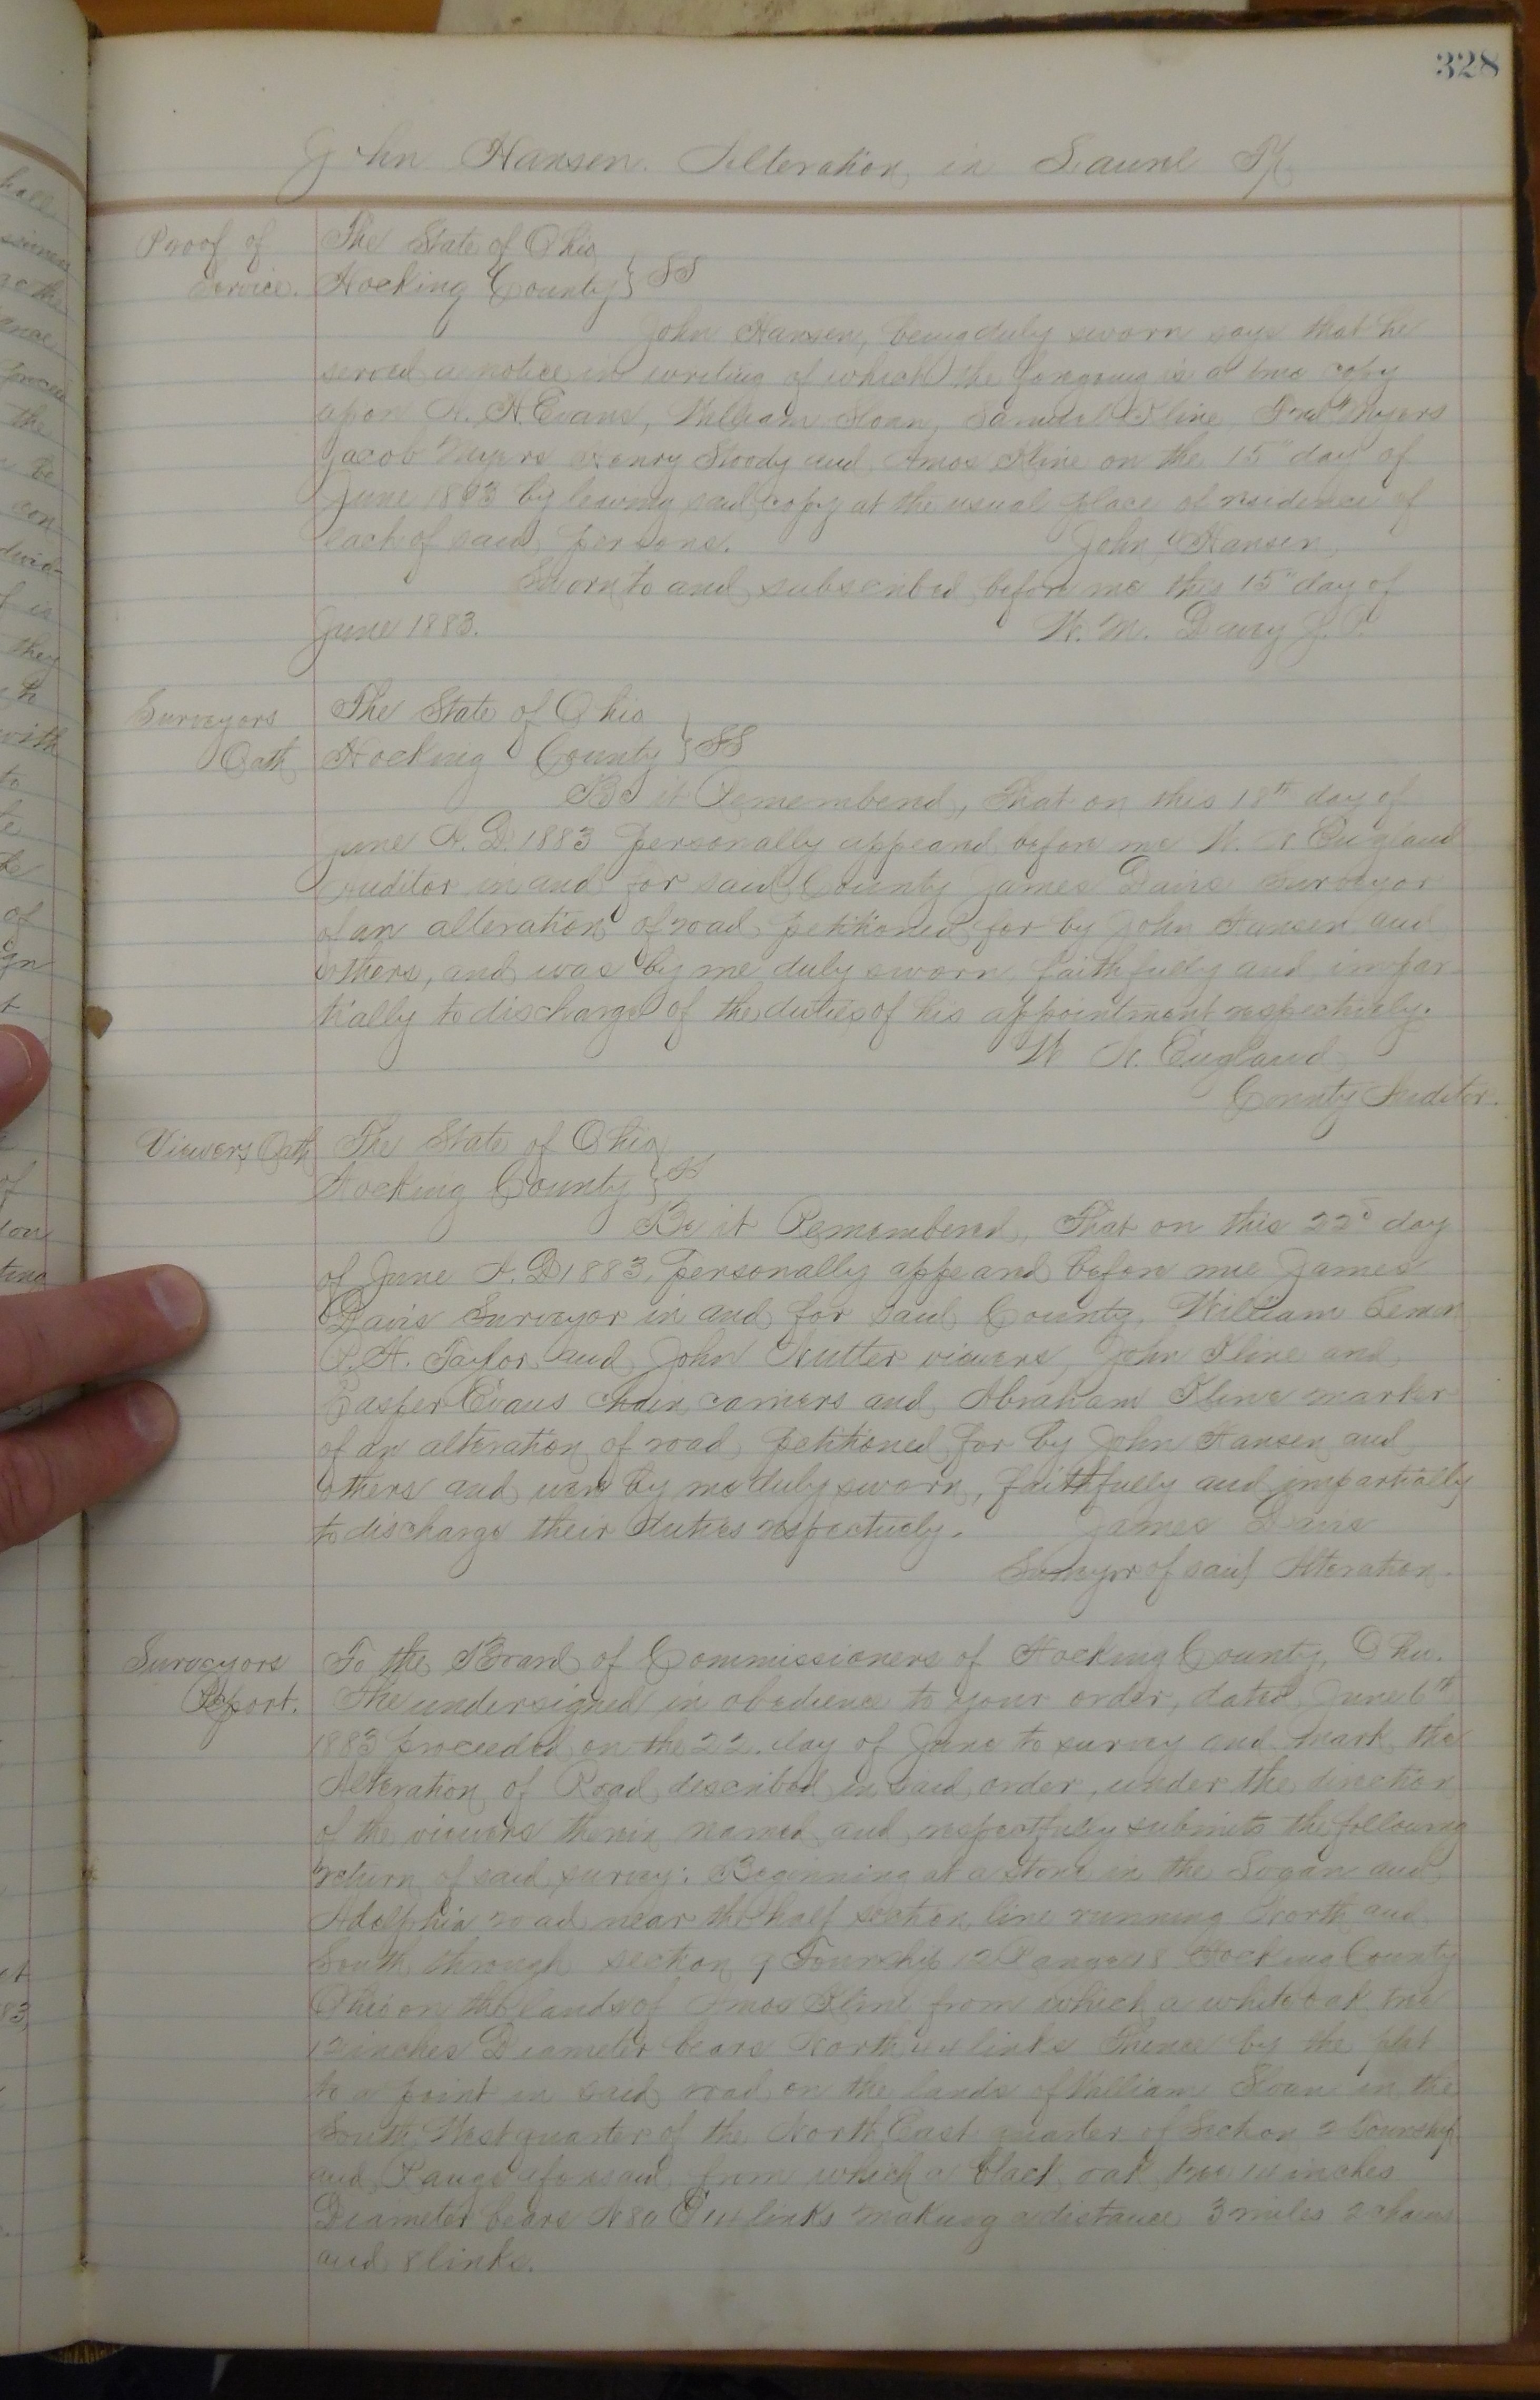 328
John Hansen. Alteration, in Laurel Tp.
Proof of
Service.
The State of Ohio
Hocking County } SS
John Hansen, being duly sworn says that he
served a notice in writing of which the foregoing is a true copy
upon A. H. Evans, William Sloan, Samuel Kline, Fred Myers
Jacob Myers Henry Stoody and Amos Kline on the 15" day of
June 1883 by leaving said copy at the usual place of residence of
each of said persons. John Hansen,
Sworn to and subscribed before me this 15" day of
June 1883. W. M. Davy J. P.
Surveyors
Oath
The State of Ohio
Hocking County } SS
Be it Remembered, That on this 18th day of
June A. D. 1883 personally appeared before me W. H. England
Auditor in and for said County James Davis Surveyor
of an alteration of road petitioned for by John Hansen and
others, and was by me duly sworn faithfully and impar
tially to discharge of the duties of his appointment respectively.
W. H. England
County Auditor.
Viewers Oath
The State of Ohio
Hocking County } SS
Be it Remembered, That on this 22d day
of June A. D 1883, personally appeared before me James
Davis Surveyor in and for said County, William Lemon
P. H. Taylor and John Nutter viewers, John Kline and
Casper Evans chain carriers and Abraham Kline marker
of an alteration of road petitioned for by John Hansen and
others and were by me duly sworn, faithfully and impartially
to discharge their duties respectively. James Davis
Surveyor of said Alteration.
Surveyors
Report.
To the Board of Commissioners of Hocking County, Ohio.
The undersigned in obedience to your order, dated June 6th
1883 proceeded on the 22. day of June to survey and mark the
Alteration of Road described in said order, under the direction
of the viewers therein named and respectfully submits the following
return of said survey: Beginning at a stone in the Logan and
Adelphia road near the half section line running North and
South through section 9 Township 12 Range 18 Hocking County
Ohio on the lands of Amos Kline from which a white oak tree
12 inches Diameter bears North 44 links Thence by the plat
to a point in said road on the lands of William Sloan in the
South West quarter of the North East quarter of Section 2 Township
and Range aforesaid from which a black oak tree 14 inches
Diameter bears N 80 E 44 links making a distance 3 miles 2 chains
and 8 links.